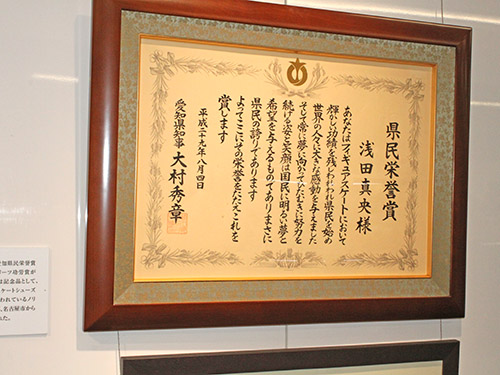 県民栄誉賞
浅田真央様
あなたはフィギュアスケートにおいて
輝かしい功績を残しわれわれ県民を始め
世界の人々に大きな感動を与えました
そして常に夢に向かってひたむきに努力を
続ける姿と笑顔は国民に明るい夢と
希望を与えるものでありまさに
県民の誇りであります
よってここにその栄誉をたたえこれを
賞します
平成二十九年八月四日
愛知県知事 大村秀章
知県民栄誉賞
リーツ功労賞が
は記念品として、
ケートシューズ
われているノリ
、名古屋市から
れた。